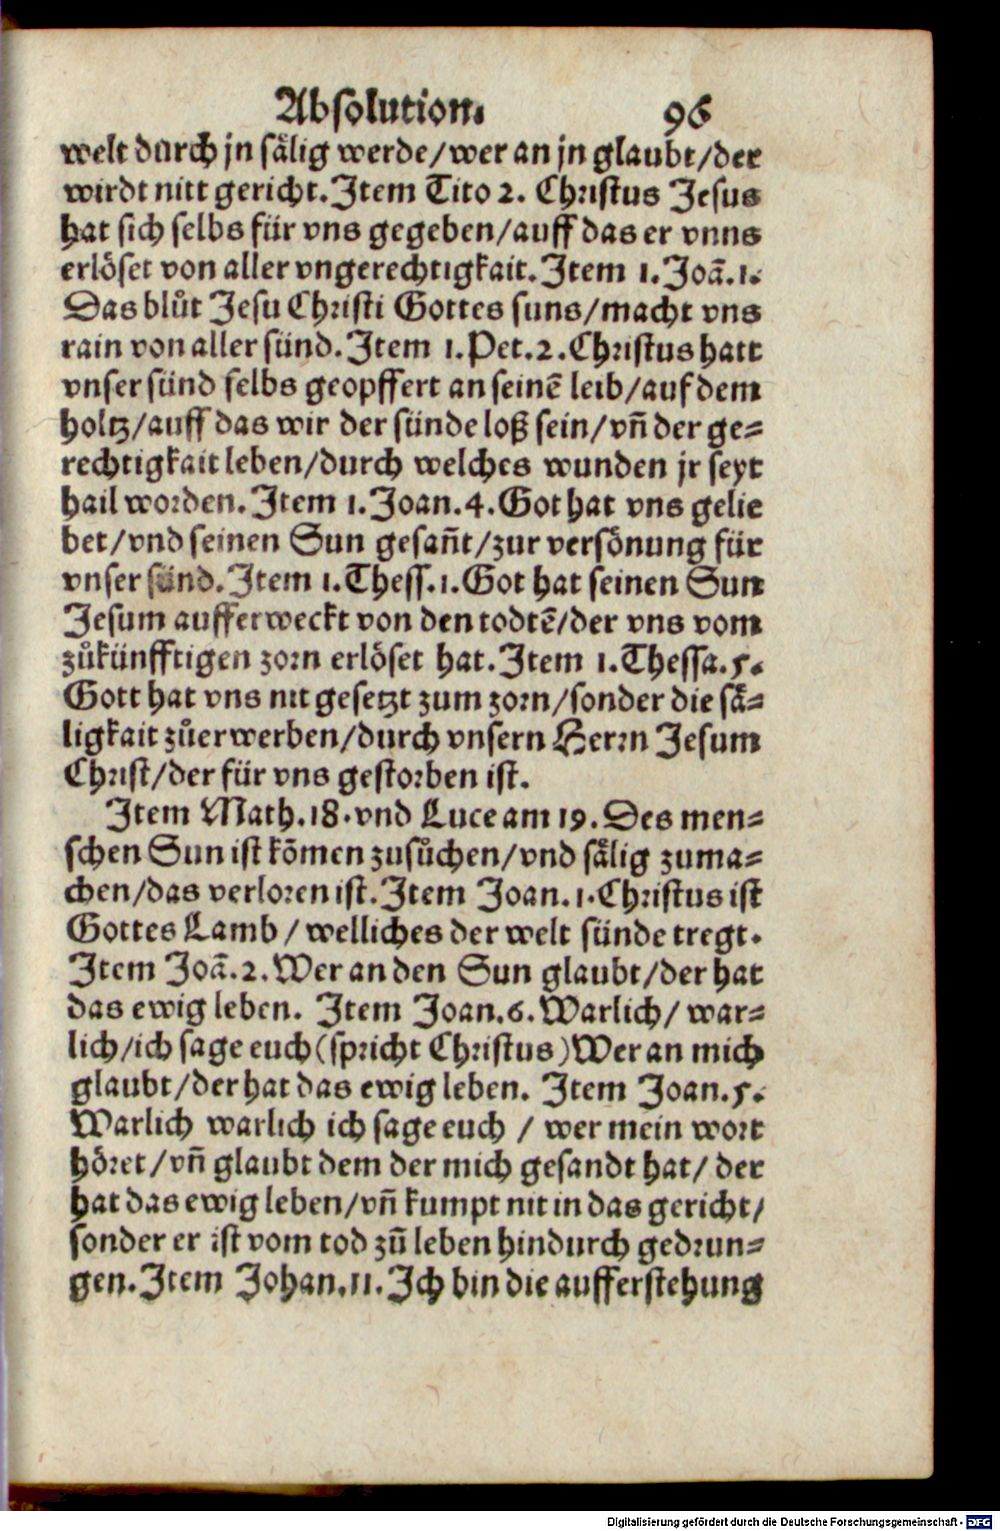 Absolution. 96
welt durch jn sälig werde/wer an jn glaubt/der
wirdt nitt gericht. Item Tito 2. Christus Jesus
hat sich selbs für vns gegeben/auff das er vnns
erlöset von aller vngerechtigkait. Item 1. Joã. 1.
Das blůt Jesu Christi Gottes suns/macht vns
rain von aller sünd. Item 1. Pet. 2. Christus hatt
vnser sünd selbs geopffert an seinẽ leib/auf dem
holtz/auff das wir der sünde loß sein/vñ der ge⸗
rechtigkait leben/durch welches wunden jr seyt
hail worden. Item 1. Joan. 4. Got hat vns gelie
bet/vnd seinen Sun gesañt/zur versönung für
vnser sünd. Item 1. Thess. 1. Got hat seinen Sun
Jesum aufferweckt von den todtẽ/der vns vom
zůkünfftigen zorn erlöset hat. Item 1. Thessa. 5.
Gott hat vns nit gesetzt zum zorn/sonder die sä⸗
ligkait zůerwerben/durch vnsern Herrn Jesum
Christ/der für vns gestorben ist.
Item Math. 18. vnd Luce am 19. Des men⸗
schen Sun ist kõmen zusůchen/vnd sälig zuma⸗
chen/das verloren ist. Item Joan. 1. Christus ist
Gottes Lamb / welliches der welt sünde tregt.
Item Joã. 2. Wer an den Sun glaubt/der hat
das ewig leben. Item Joan. 6. Warlich/ war⸗
lich/ich sage euch (spricht Christus) Wer an mich
glaubt/der hat das ewig leben. Item Joan. 5.
Warlich warlich ich sage euch / wer mein wort
höret/vñ glaubt dem der mich gesandt hat/ der
hat das ewig leben/vñ kumpt nit in das gericht/
sonder er ist vom tod zũ leben hindurch gedrun⸗
gen. Item Johan. 11. Ich bin die aufferstehung
Digitalisierung gefördert durch die Deutsche Forschungsgemeinschaft - DFG